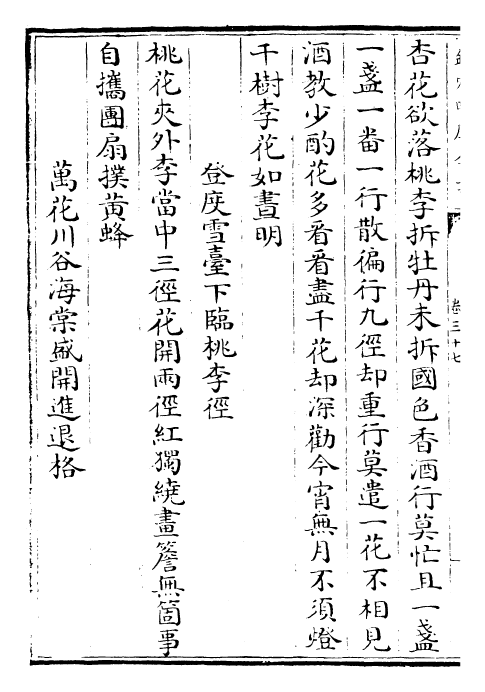 卷三十七
杏花欲落桃李拆牡丹未拆國色香酒行莫忙且一盞
一盞一畨一行散徧行九徑却重行莫遣一花不相見
酒教少酌花多看看盡千花却深勸今宵無月不須燈
千樹李花如晝明
登度雪臺下臨桃李徑
桃花夾外李當中三徑花開兩徑紅獨繞畫簷無箇事
自攜團扇撲黃蜂
萬花川谷海棠盛開進退格